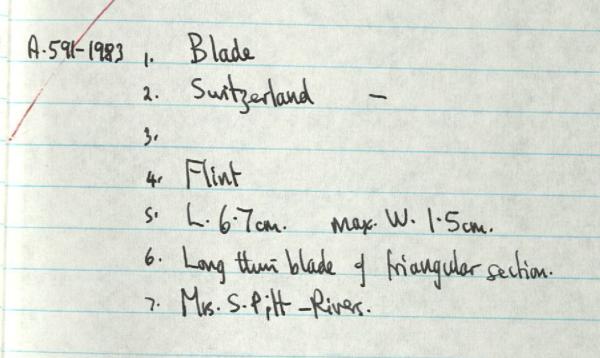 A.591-1983 1. Blade
2. Switzerland –
3.
4. Flint
5. L. 6.7cm. max. W. 1.5cm.
6. Long thin blade of triangular section.
7. Mrs. S. Pitt-Rivers.